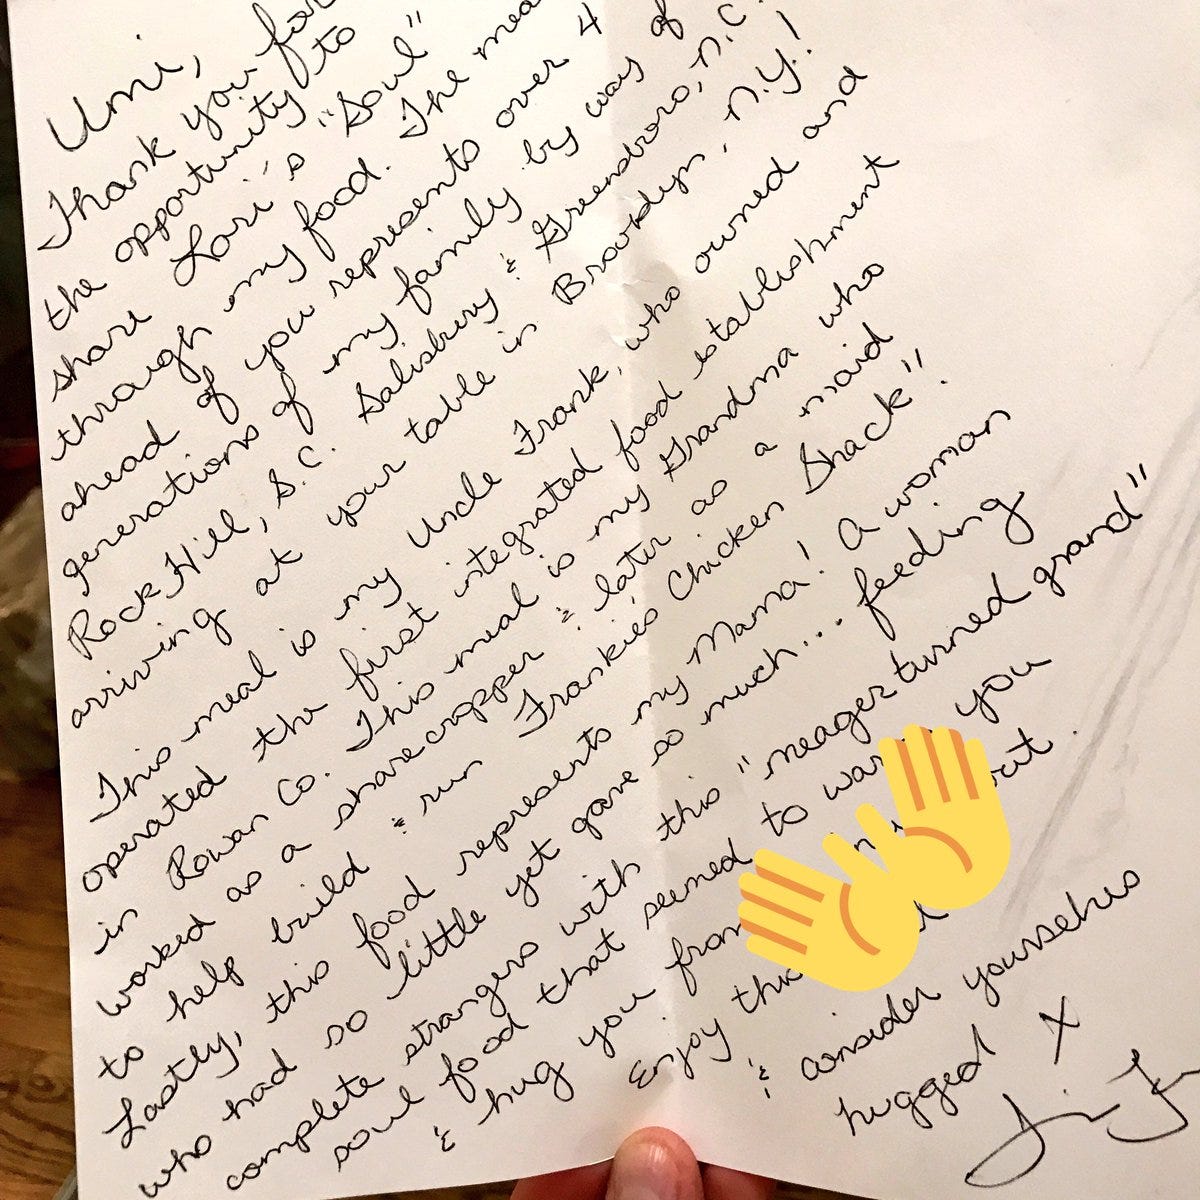 Umi,
Thank you for
the opportunity to
share Lori's "Soul"
through my food. The mea
ahead of you represents over 4
generations of my family by way of
Rock Hill, S.C. Salisbury & Greensboro, N.C.
arriving at your table in Brooklyn, N.Y.!
This meal is my Uncle Frank, who owned and
operated the first integrated food establishment
in Rowan Co. This meal is my Grandma who
worked as a sharecropper & later as a maid
to help build & run Frankie's Chicken Shack".
Lastly, this food represents my Mama! A woman
who had so little yet gave so much... feeding
complete strangers with this "meager turned grand"
soul food that seemed to you
& hug you from
Enjoy this
& consider yourselves
hugged X